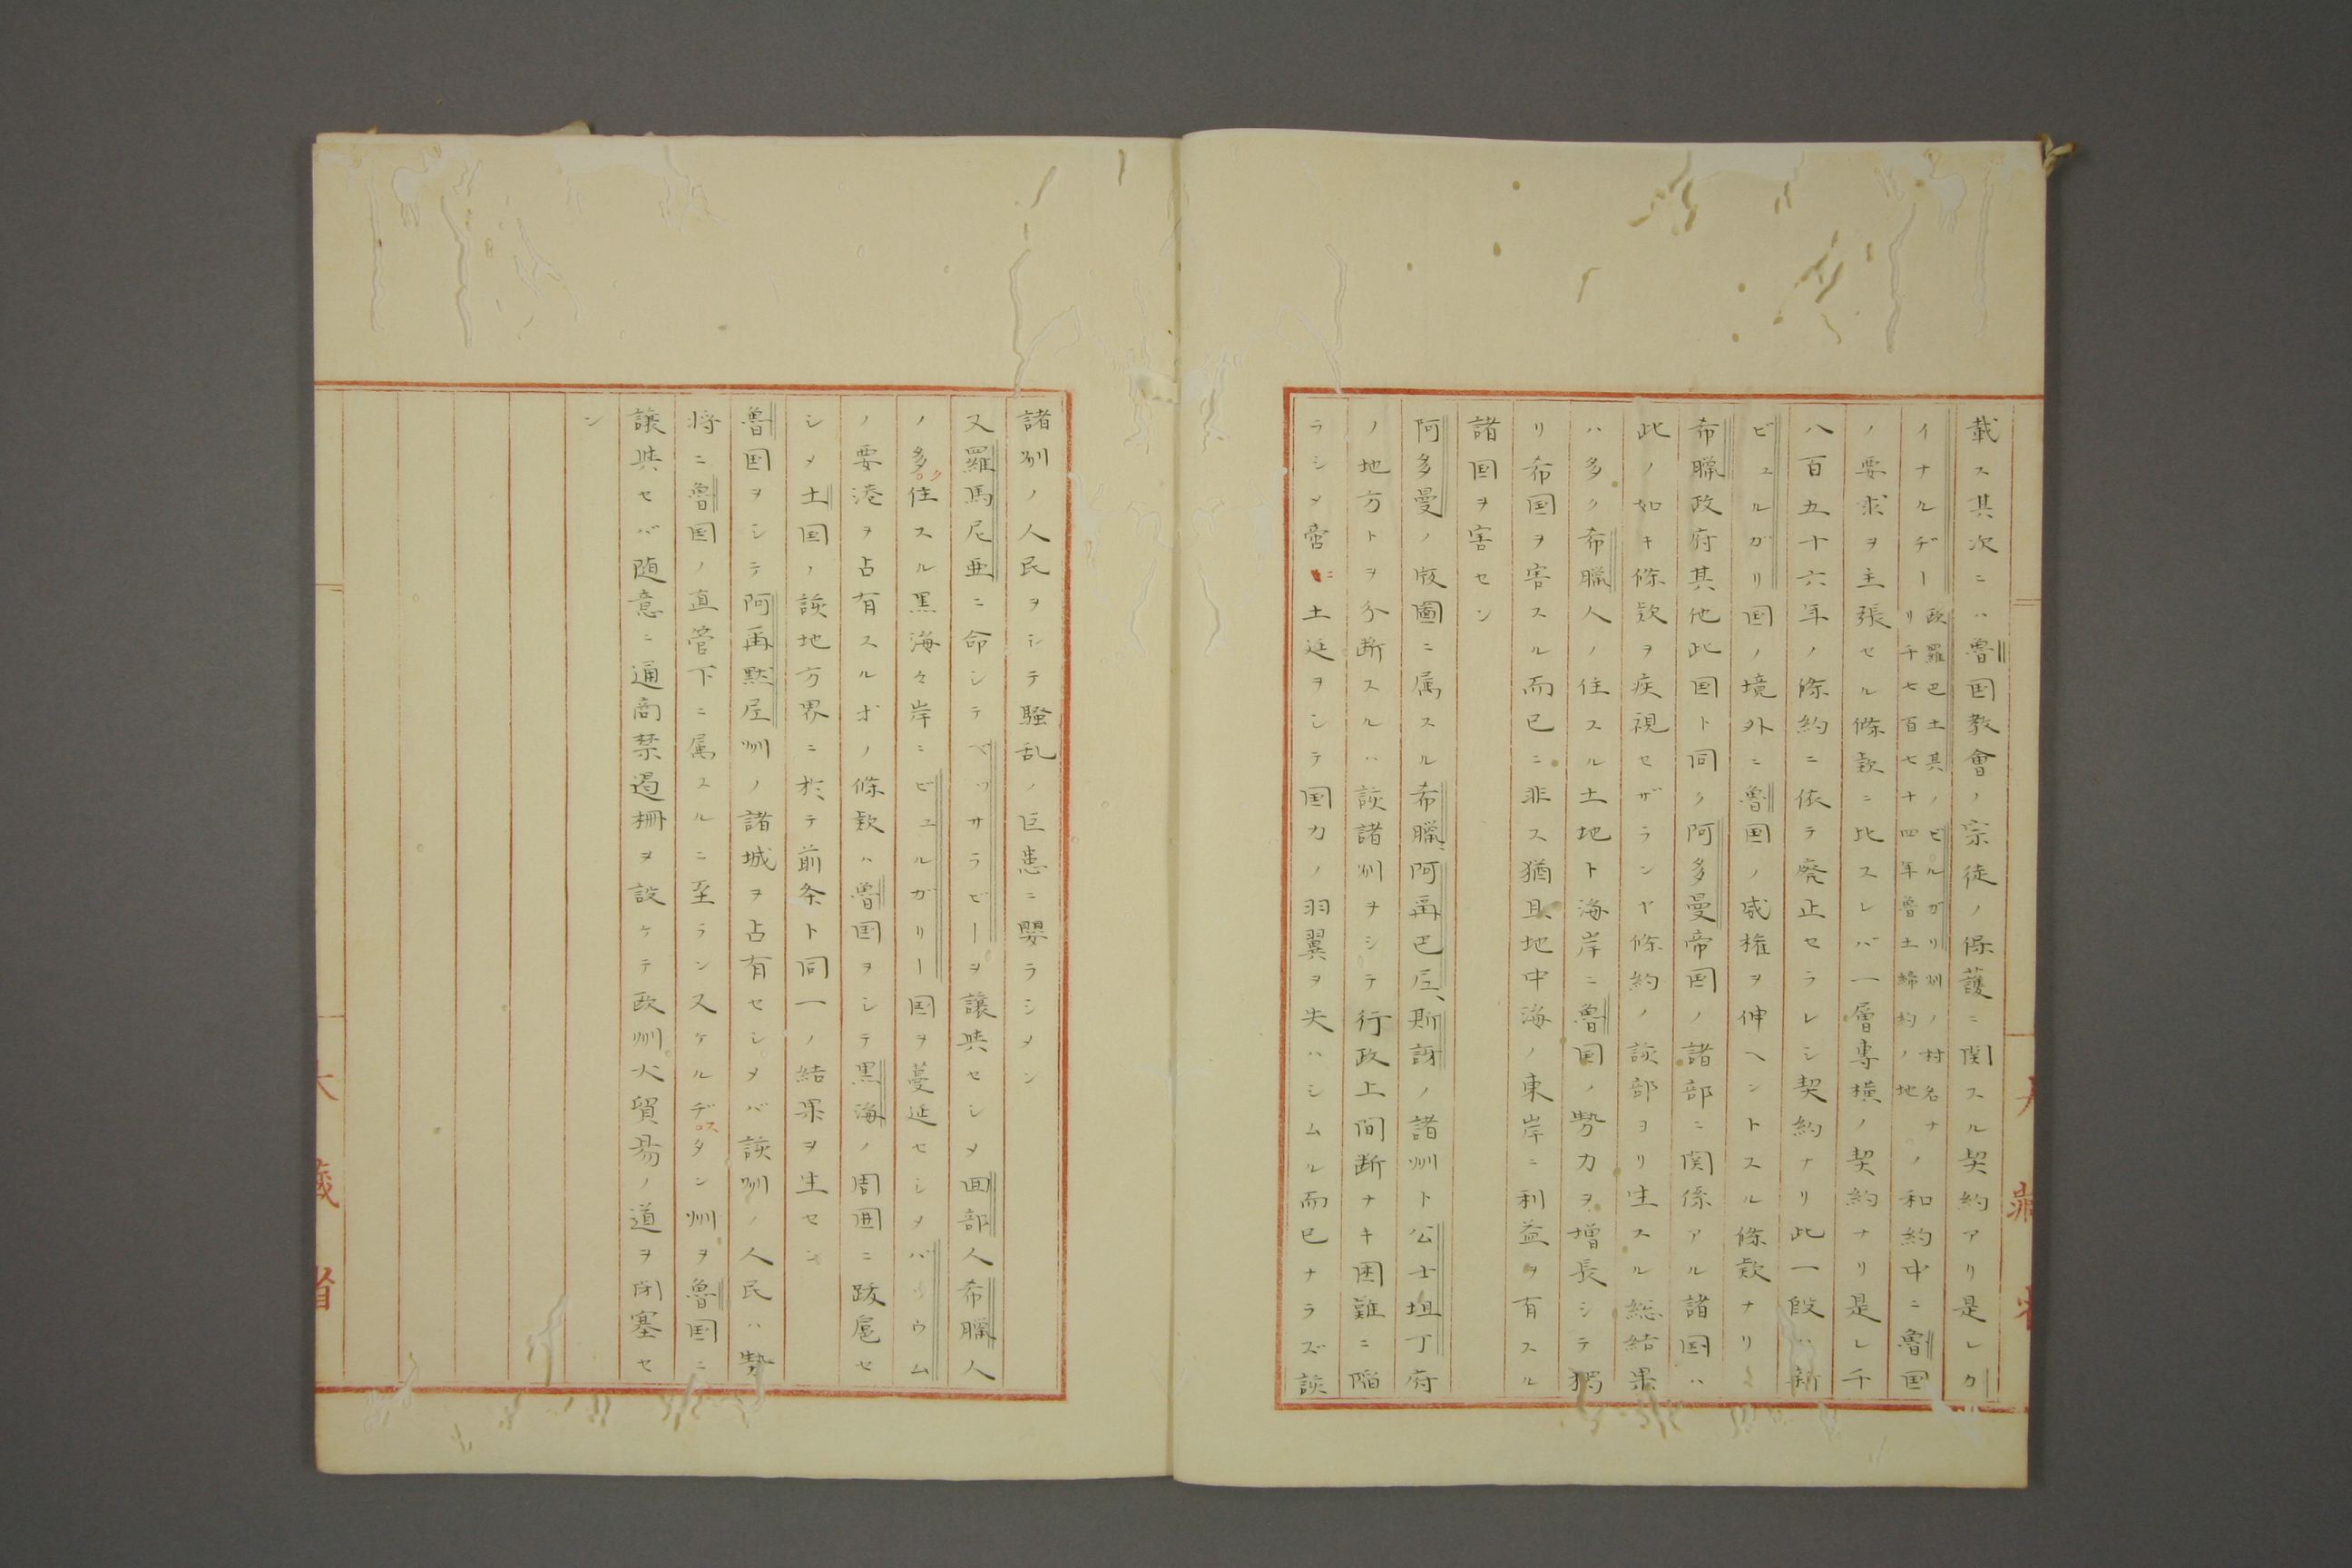 載ス其次ニハ魯国教會ノ宗徒ノ保護ニ関スル契約アリ是レカ
イナルヂー欧羅巴土其ノビルガリ州ノ村名ナリ千七百七十四年魯土締約ノ地ノ和約中ニ魯国
ノ要求ヲ主張セル條欵ニ比スレバ一層専横ノ契約ナリ是レ千
八百五十六年ノ條約ニ依テ廃止セラレシ契約ナリ此一段ハ新
ビュルガリ国ノ境外ニ魯国ノ威権ヲ伸ヘントスル條欵ナリ
希臘政府其他此国ト同ク阿多曼帝国ノ諸部ニ関係アル諸国ハ
此ノ如キ條欵ヲ疾視セザランヤ條約ノ該部ヨリ生スル総結果
ハ多ク希臘人ノ住スル土地ト海岸ニ魯国ノ勢力ヲ増長シテ獨
リ希国ヲ害スル而已ニ非ス猶且地中海ノ東岸ニ利益ヲ有スル
諸国ヲ害セン
阿多曼ノ版圖ニ属スル希臘、阿再巴尼、斯訝ノ諸州ト公士坦丁府
ノ地方トヲ分断スルハ該諸州ヲシテ行政上間断ナキ困難ニ陥
ラシメ啻ニ土廷ヲシテ国力ノ羽翼ヲ失ハシムル而已ナラズ該
諸州ノ人民ヲシテ騒乱ノ巨患ニ嬰ラシメン
又羅馬尼亜ニ命シテベッサラビーヲ譲與セシメ回部人希臘人
ノ多ク住スル黒海々岸ニビュルガリー国ヲ蔓延セシメバツウム
ノ要港ヲ占有スルホノ條欵ハ魯国ヲシテ黒海ノ周囲ニ跋扈セ
シメ土国ノ該地方界ニ於テ前条ト同一ノ結果ヲ生セン
魯国ヲシテ阿再黙尼州ノ諸城ヲ占有セシメバ該州ノ人民ハ勢
将ニ魯国ノ直管下ニ属スルニ至ランスケルヂスタン州ヲ魯国ニ
譲與セバ随意ニ通商禁遏柵ヲ設ケテ欧州大貿易ノ道ヲ閉塞セ
ン
大藏省